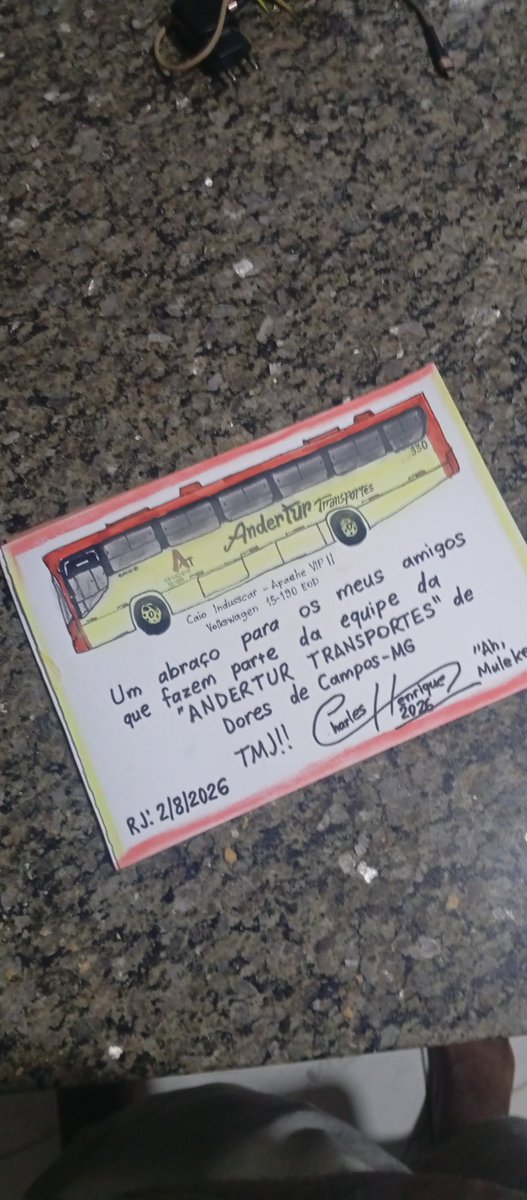 330
Andertur Transportes
AT
Caio Indusscar - Apache VIP II
Volkswagen 15-190 EOD
Um abraço para os meus amigos
que fazem parte da equipe da
"ANDERTUR TRANSPORTES" de
Dores de Campos-MG
TMJ!!
Charles Henrique
2026
"Ah,
Muleke
RJ: 2/8/2026